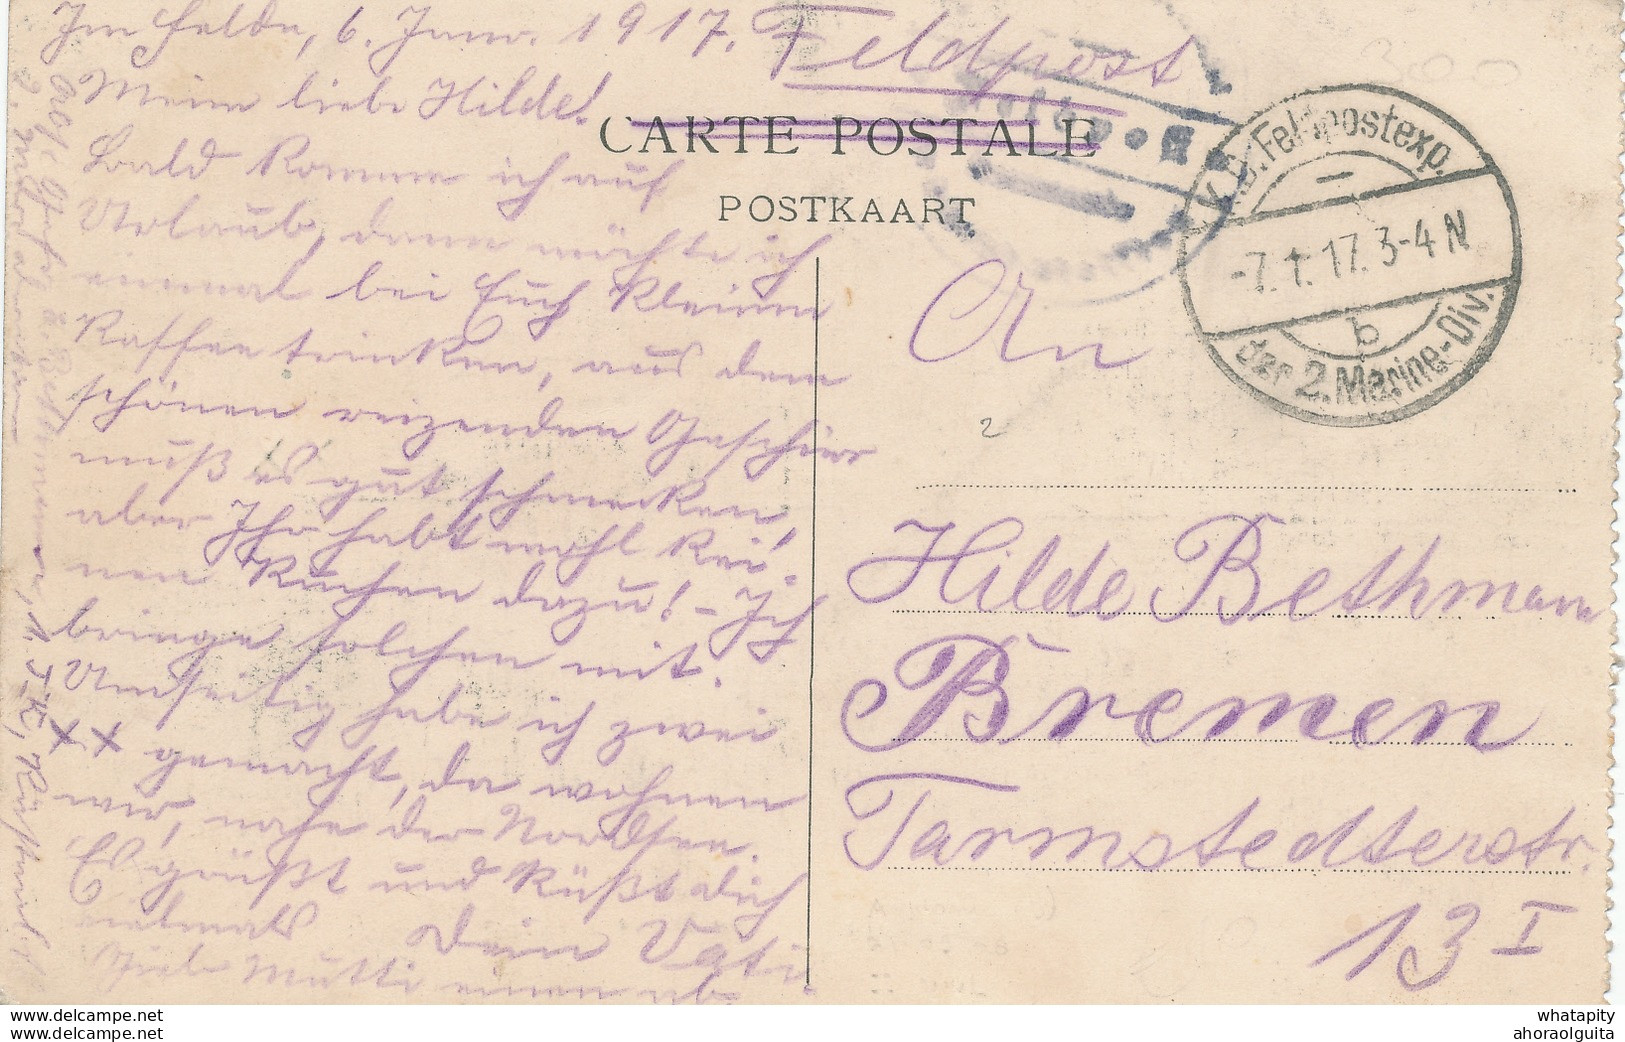 Im Felde, 6. Janu. 1917.
Feldpost
Meine liebe Hilde!
CARTE POSTALE
POSTKAART
Bald komme ich auf
Urlaub, dann möchte ich
einmal bei Euch kleinen
Kaffee trinken, aus dem
schönen reizenden Geschirr
muß es gut schmecken,
aber Ihr habt wohl kei-
nen Kuchen dazu! - Ich
bringe solchen mit.
Umseitig habe ich zwei
x x gemacht, da wohnen
wir, nahe der Nordsee.
Es grüßt und küßt dich
vielmals Dein Vati.
Gieb Mutti einen ab
K.D. Feldpostexp.
-7.1.17. 3-4 N
b
der 2. Marine-Div.
An
2
Hilde Bethmann
Bremen
Tarmstedterstr.
13 I
300
whatapity
ahoraolguita